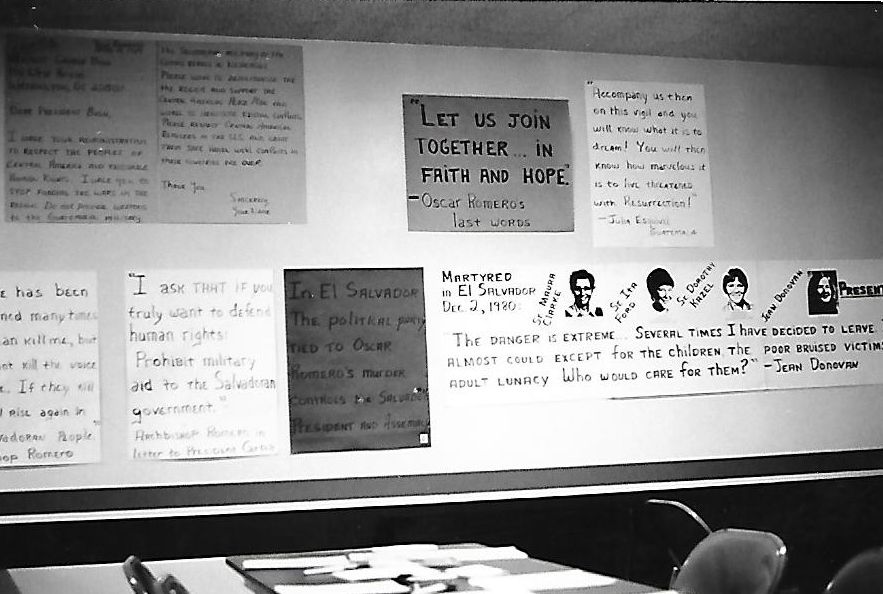 President Bush
Dear President Bush,
I urge your administration
to respect the peoples of
Central America and
Human Rights. I urge you to
stop funding the wars in the
region. Do not provide weapons
to the Guatemalan military,
the Salvadoran military or the
Please work to demilitarize the
the region and support the
Central American Peace Plan and
work to negotiate regional conflicts.
Please respect Central American
Refugees in the U.S. and grant
them safe haven until conflicts in
their countries are over.
Thank You
Sincerely,
Your Name
"LET US JOIN
TOGETHER... IN
FAITH AND HOPE."
-Oscar Romero's
last words
"Accompany us then
on this vigil and you
will know what it is to
dream! You will then
know how marvelous it
is to live threatened
with Resurrection!"
-Julia Esquivel
Guatemala
has been
many times
an kill me, but
not kill the voice
If they kill
rise again in
vadoran People."
op Romero
"I ask that if you
truly want to defend
human rights:
Prohibit military
aid to the Salvadoran
government."
Archbishop Romero in
letter to President Carter
In El Salvador
The political party
tied to Oscar
Romero's murder
controls the Salvador
President and Assembly
Martyred
in El Salvador
Dec. 2, 1980:
Sr. Maura
Clarke
Sr. Ita
Ford
Sr. Dorothy
Kazel
Jean Donovan
Present
"The danger is extreme... Several times I have decided to leave
almost could except for the children, the poor bruised victims
adult lunacy Who would care for them?" -Jean Donovan